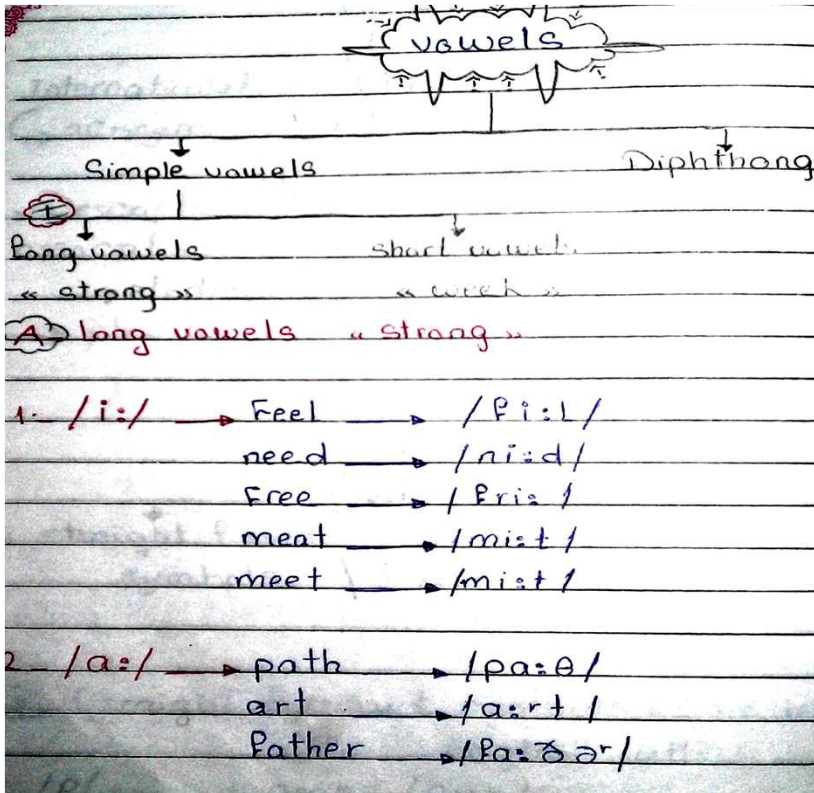 vowels
Simple vowels Diphthong
I
long vowels short vowels
« strong » « week »
A long vowels « strong »
1- /i:/ → Feel → /fi:l/
need → /ni:d/
Free → /fri:/
meat → /mi:t/
meet → /mi:t/
2- /a:/ → path → /pa:θ/
art → /a:rt/
father → /fa:ðəʳ/